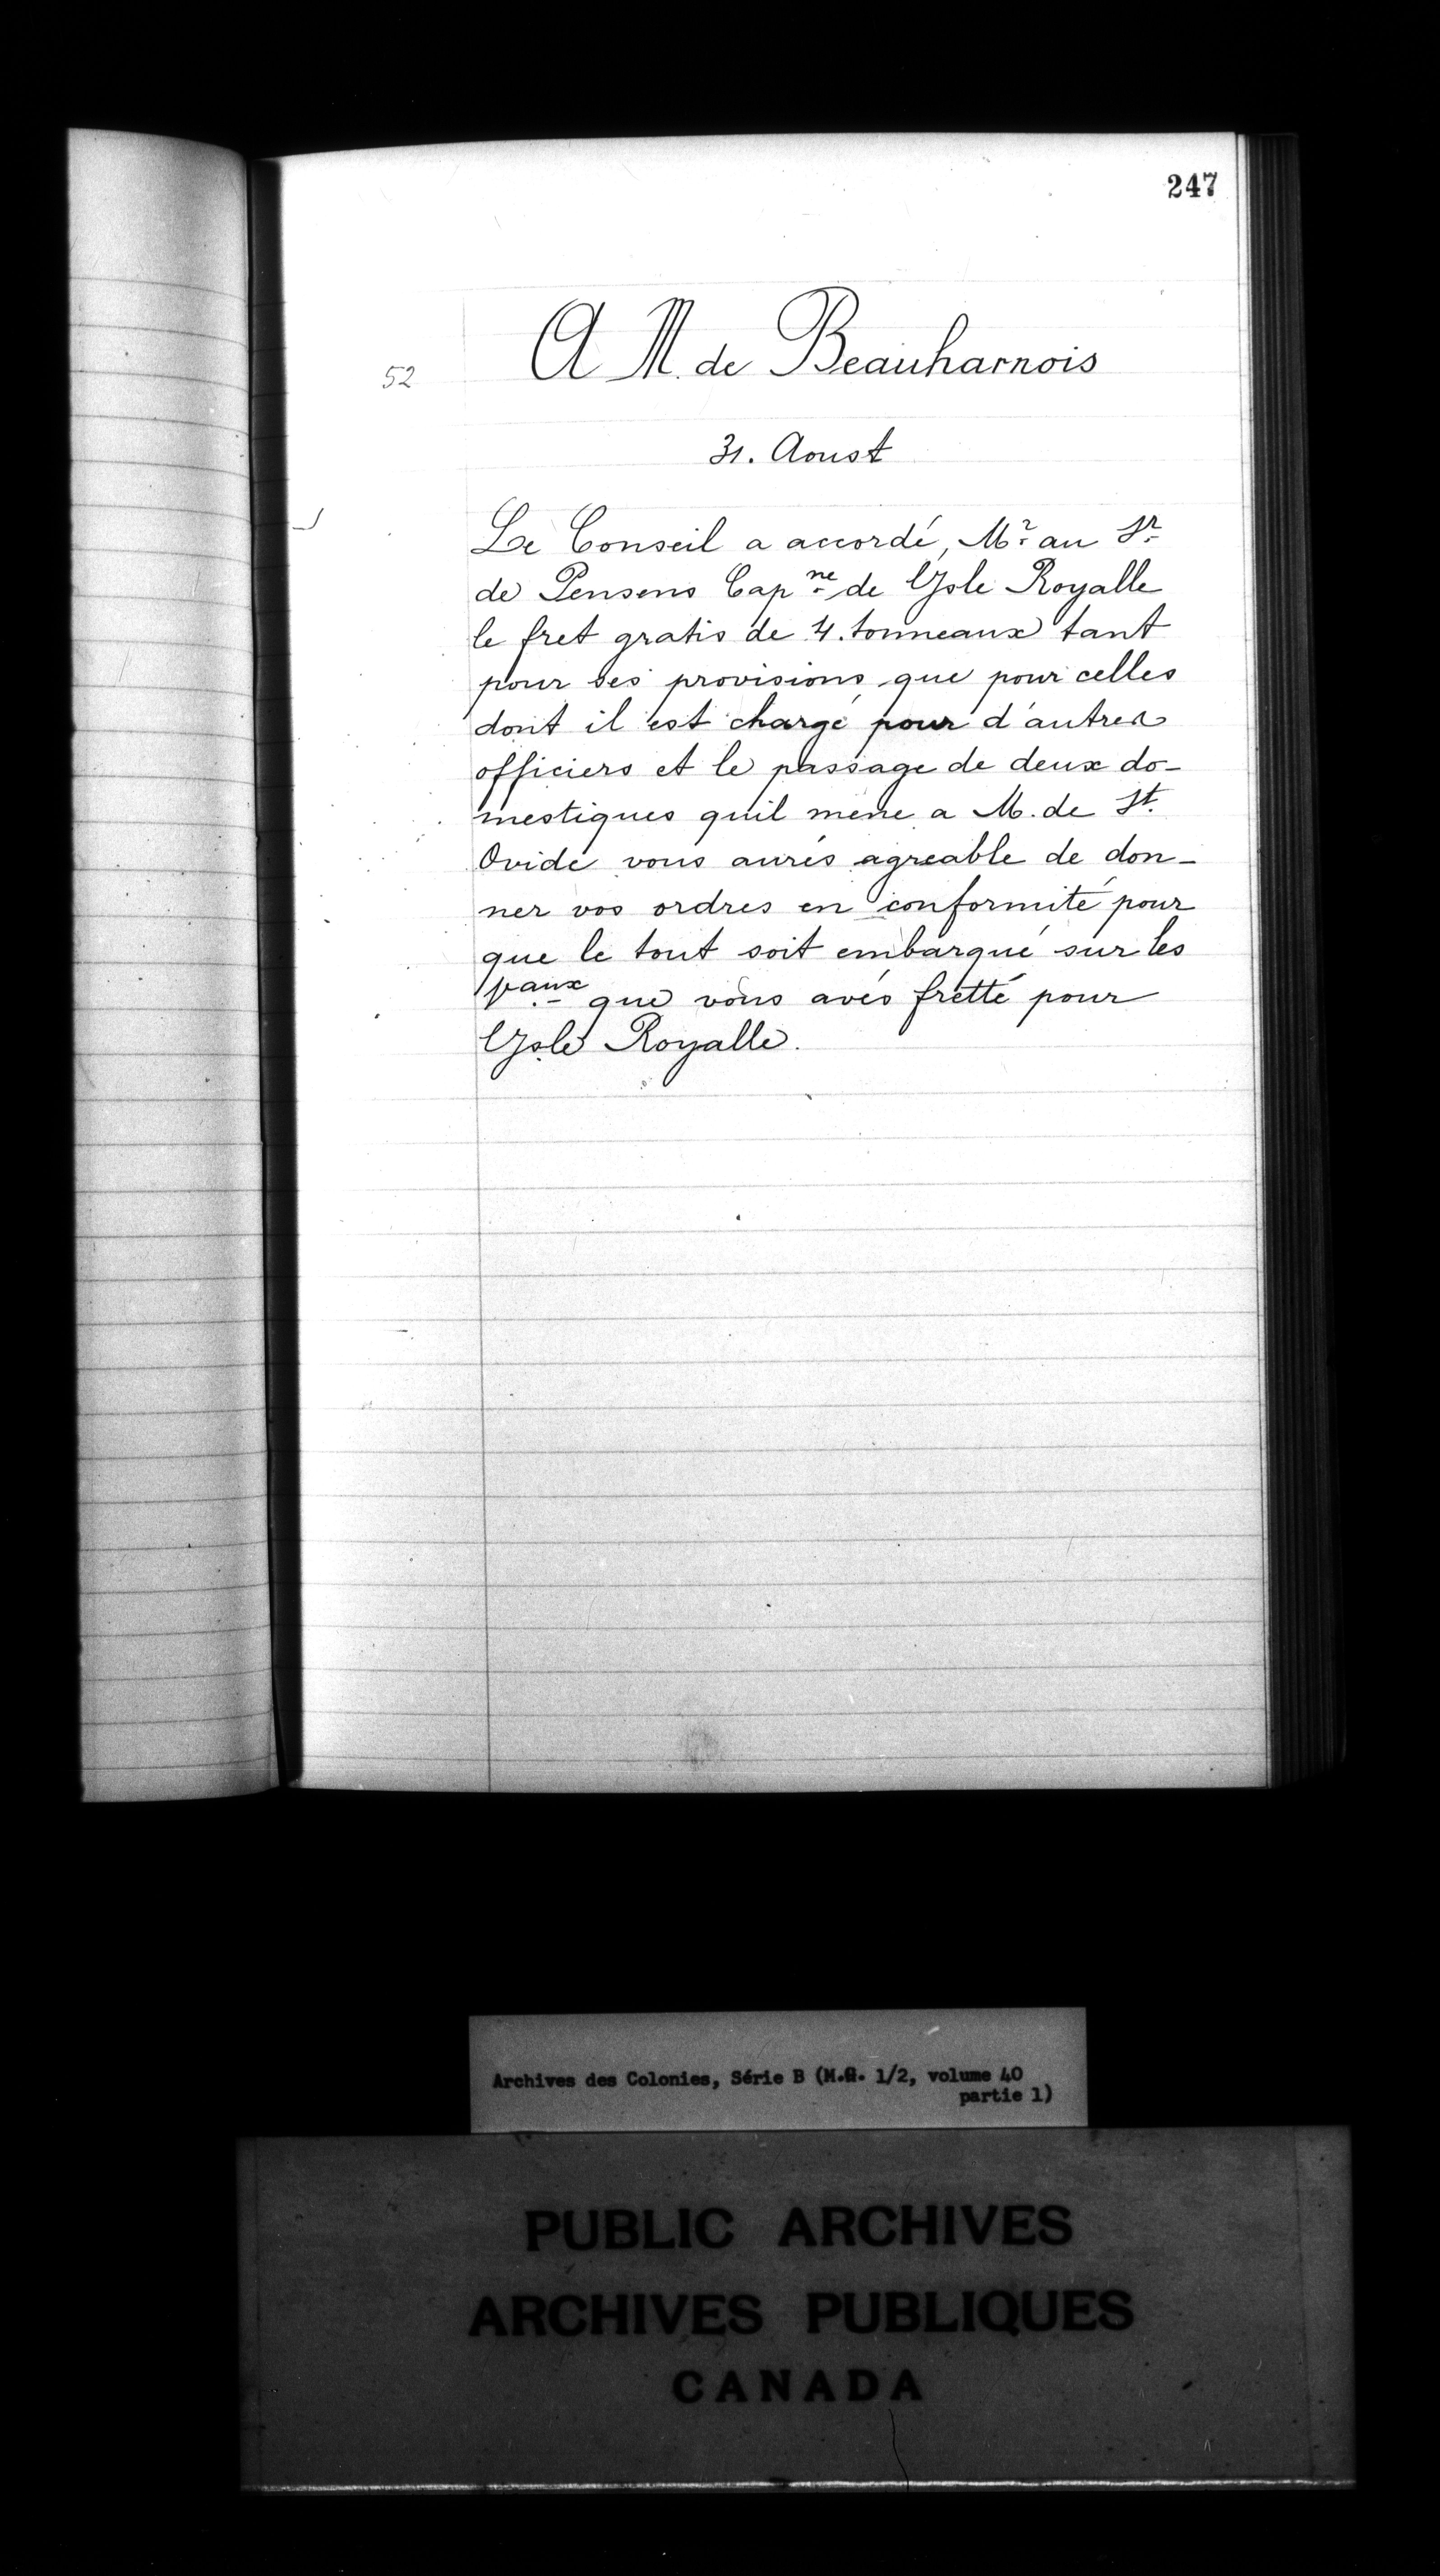 247
52
A M. de Beauharnois
31. Aoust
Le Conseil a accordé, Mr. au Sr.
de Pensens Capne. de lYsle Royalle
le fret gratis de 4. tonneaux tant
pour ses provisions que pour celles
dont il est chargé pour d'autres
officiers et le passage de deux do-
mestiques quil mene a M. de St.
Ovide vous aurés agreable de don-
ner vos ordres en conformité pour
que le tout soit embarqué sur les
vaux. que vous avés fretté pour
lYsle Royalle.
Archives des Colonies, Série B (M.G. 1/2, volume 40
partie 1)
PUBLIC ARCHIVES
ARCHIVES PUBLIQUES
CANADA